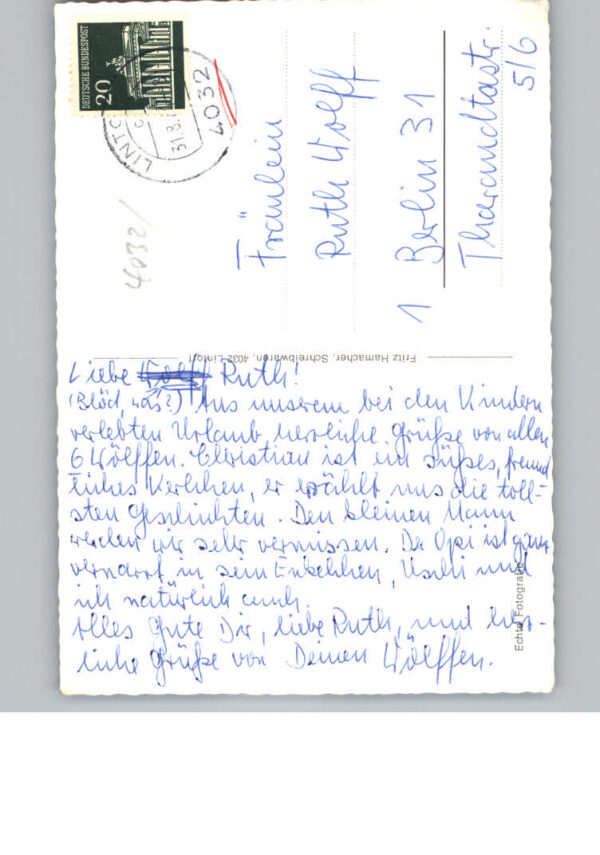 DEUTSCHE BUNDESPOST
20
31.8.
4032
4032/
Fräulein
Ruth Wolff
1 Berlin 31
Tharandtastr.
5/6
Fritz Hamacher, Schreibwaren, 4032 Lintorf
Echte Fotografie
Liebe Ruth!
(Blöd, was?) Aus unserem bei den Kindern
verlebten Urlaub herzliche Grüße von allen
6 Wölffen. Christian ist ein süßes, freund
liches Kerlchen, er erzählt uns die toll-
sten Geschichten. Den kleinen Mann
werden wir sehr vermissen. Der Opi ist ganz
vernarrt in sein Enkelchen, Uschi und
ich natürlich auch.
Alles Gute Dir, liebe Ruth, und herz-
liche Grüße von Deinen Wölffen.